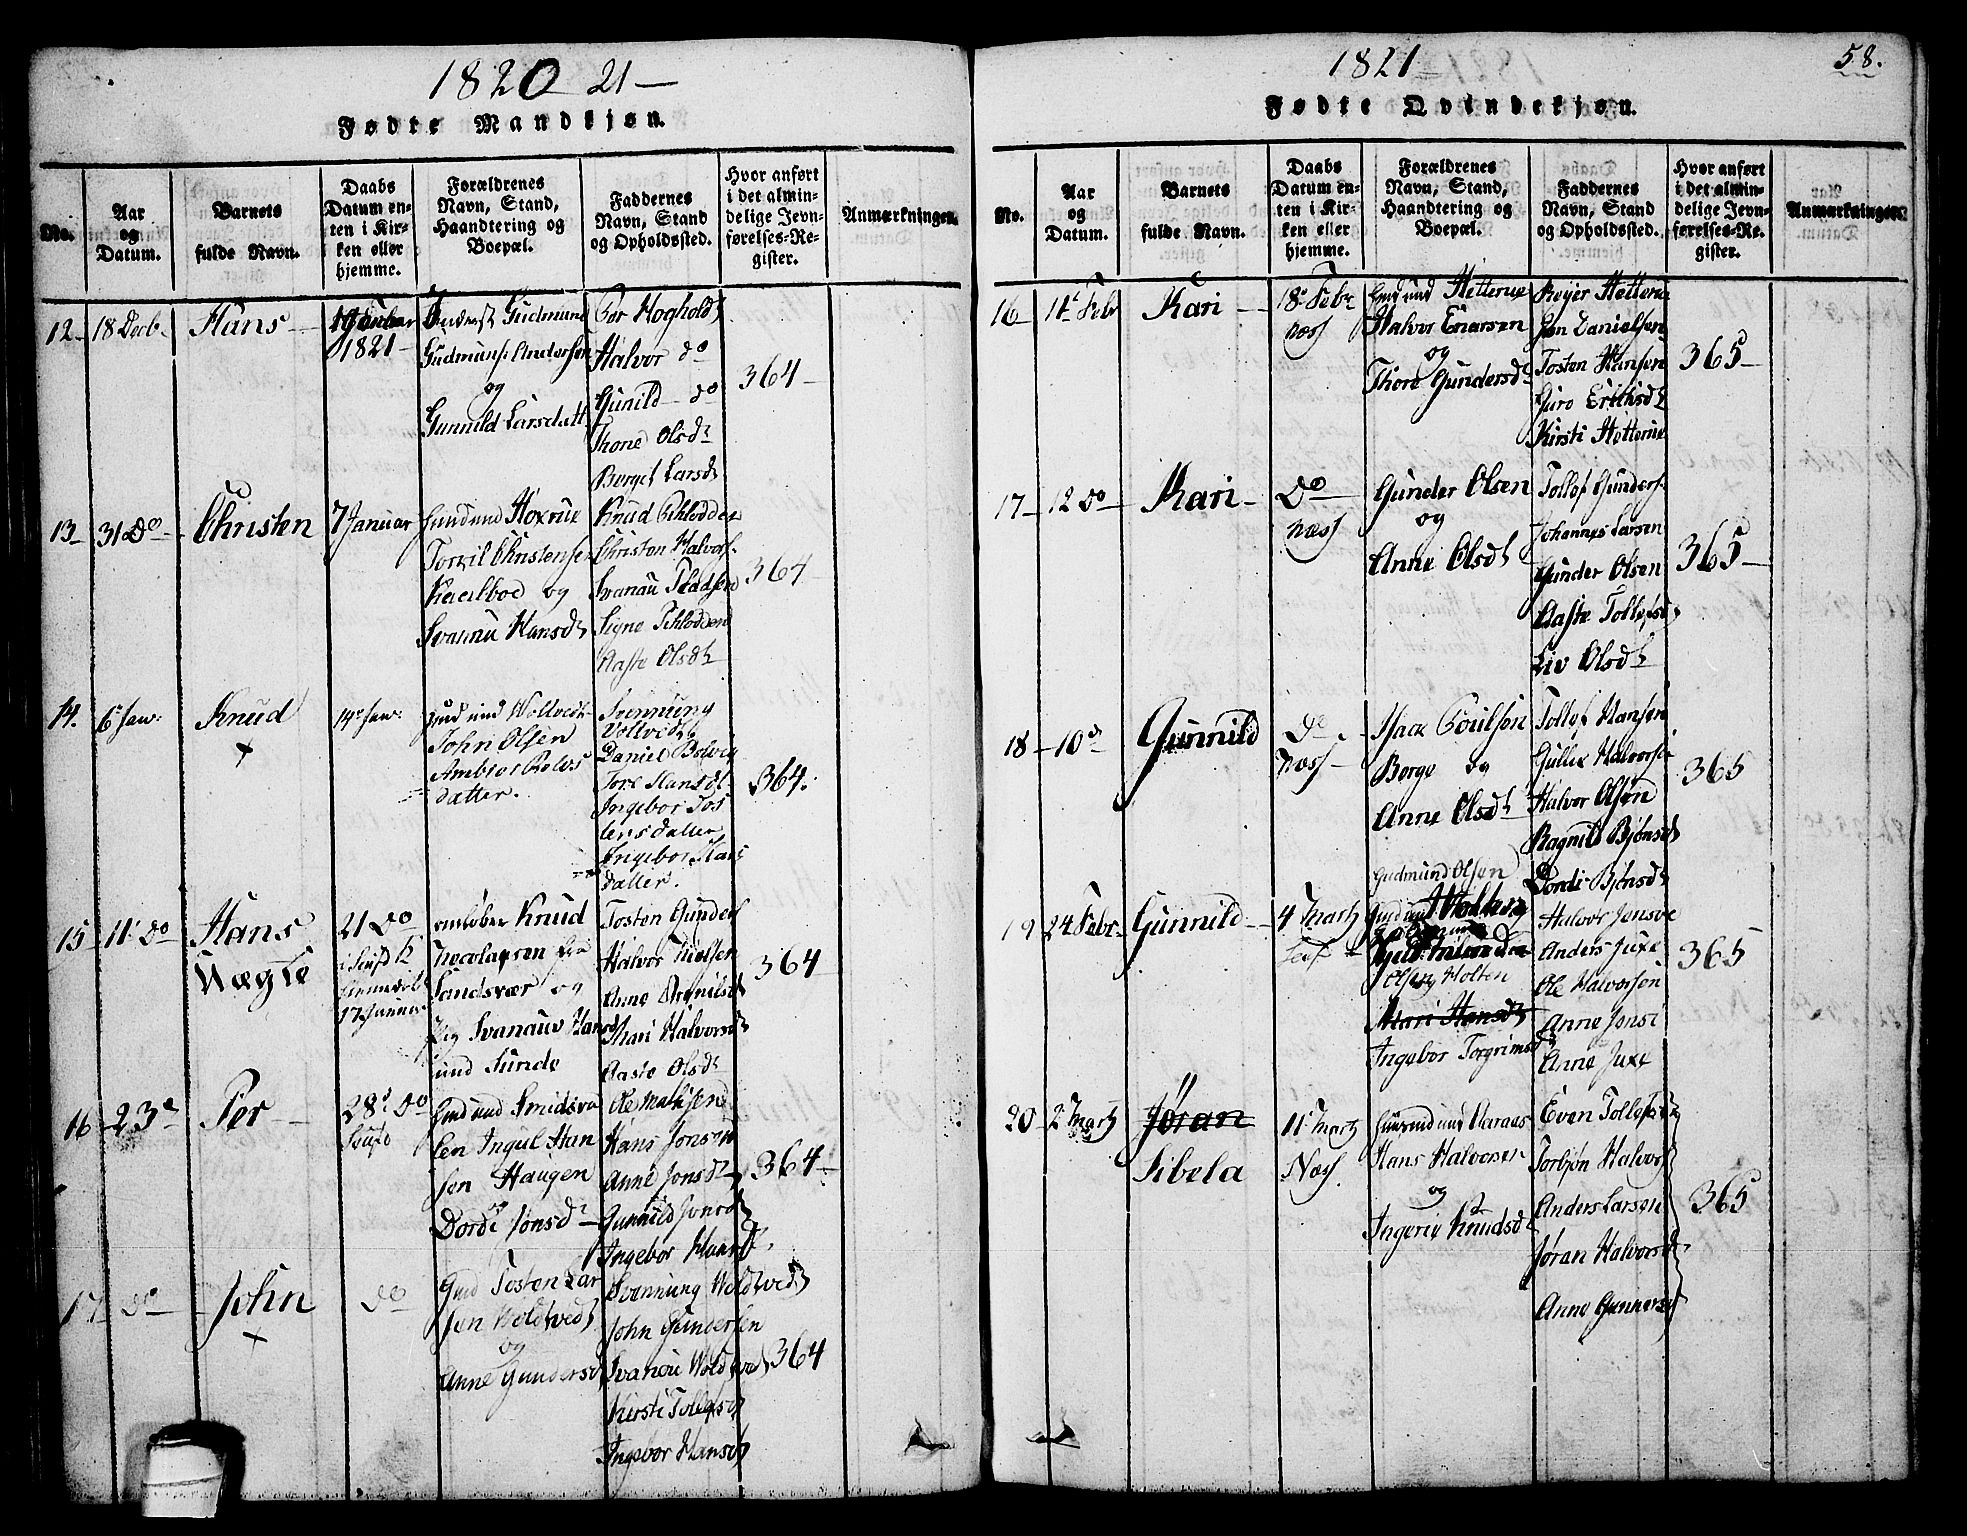 1820 21 —
Fødte Mandkjøn.
No.
Aar
og
Datum.
Barnets
fulde Navn.
Daabs
Datum en-
ten i Kir-
ken eller
hjemme.
Forældrenes
Navn, Stand,
Haandtering og
Boepæl.
Faddernes
Navn, Stand
og Opholdssted.
Hvor anført
i det almin-
delige Jevn-
førelses-Re-
gister.
Anmærkninger.
12 – 18 Decb.
Hans
1821
Gudmund
Gudmund Andersen
og
Gunnild Larsdatt
Per Hoghold
Halvor do
Gunild do
Thone Olsd
Borgel Larsd
364 –
13 – 31 Do
Christen
7 Januar
Torkil Christense
og
Svannu Hansd
Knud
Christen Halvors
Svanau
Signe
Aaste Olsdt
364
14. 6 Jan:
Knud
+
14 Jan:
John Olsen
datter.
Svennung
Daniel Bolvig
Tore Hansdt
Ingebor Tos
tensdatter
Ingebor Hans
datter.
364.
15 – 11 do
Hans
Nægte
21 Do
17 Januar
Knud
og
Svanau Hansd
und Sunde
Tosten Gunders
Halvor Nielsen
Anne
Mari Halvorsd
Aaste Olsdt
364
16 – 23 d
Per
28 do
len Ingul Han
sen Haugen
og
Dordi Jonsd
Ole Mathisen
Hans Jonsen
Anne Jonsd
Gunnild Jonsd
Ingebor Hansd
364 –
17 – do
John
+
do
Tosten Lar
sen Woldved
og
Anne Gundersd
Svennung Woldved
John Gundersen
Svanau Woldved
Kirsti Tollefsd
Ingebor Hansd
364
1821 –
58.
Fødte Qvindekjøn.
No.
Aar
og
Datum.
Barnets
fulde Navn.
Daabs
Datum en-
ten i Kir-
ken eller
hjemme.
Forældrenes
Navn, Stand,
Haandtering og
Boepæl.
Faddernes
Navn, Stand
og Opholdssted.
Hvor anført
i det almin-
delige Jevn-
førelses-Re-
gister.
Anmærkninger.
16 – 11 Feb
Kari
18 Febr
Næss
Hetterue
Halvor Enersen
og
Thore Gundersd
Reyer Hetterue
Jon Danielsen
Tosten Hansen
Guro Eriksd
Kirsti Hetterue
365 –
17 – 12 do
Kari –
Do
Næss
Gunder Olsen
og
Anne Olsdt
Tollef Gunders
Johannes Larsen
Gunder Olsen
Aaste Tollefsd
Liv Olsdt
365 –
18 – 10 d
Gunnild
Do
Næss
Isack Poulsen
Borge og
Anne Olsdt
Tollef Hansen
Gullex Halvorse
Halvor Olsen
Ragnild Bjønsd
Dordi Bjønsd
365
19 24 Febr.
Gunnild
4 Martz
Gudmund Olsen
Holten
Olsen Holten
Mari Hansd
Ingebor Torgrimsd
Halvor Jensve
Anders Juxe
Ole Halvorsen
Anne Jonsi
Anne Juxe
365
20 – 2 Martz
Jøran
Sibela
11 Martz
Næss.
Hans Halvorsen
og
Ingerie Knudsd
Even Tollefs
Torbjøn Halvors
Anders Larsen
Jøran Halvorsd
Anne Gunnersd
365